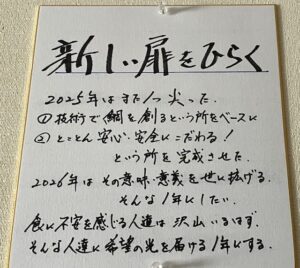 新しい扉をひらく
2025年はまた1つ尖った。
①技術で鯛を創るという所をベースに
②とことん安心・安全にこだわる！
という所を完成させた。
2026年はその意味・意義を世に拡げる。
そんな1年にしたい。
食に不安を感じる人達は沢山いるはず。
そんな人達に希望の光を届ける1年にする。